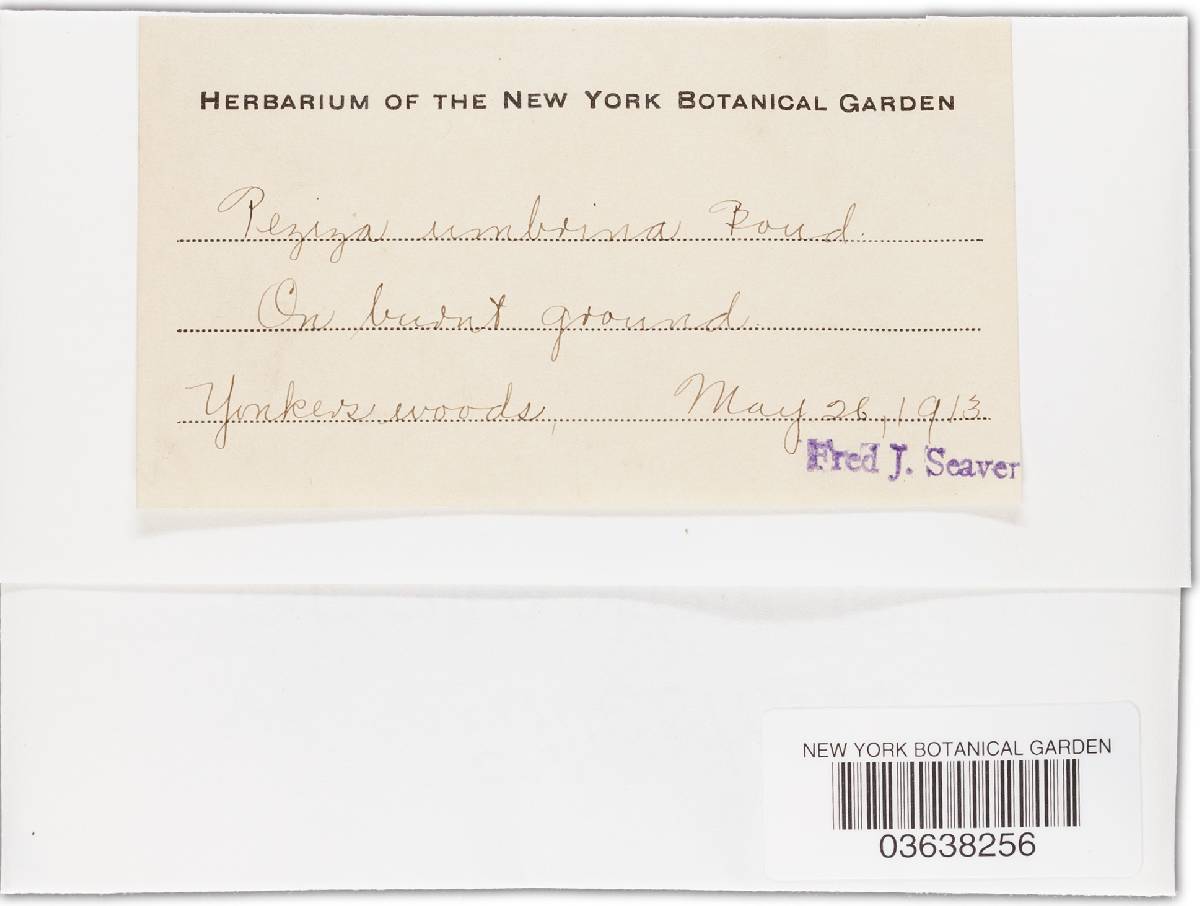 HERBARIUM OF THE NEW YORK BOTANICAL GARDEN
Peziza umbrina Boud.
On burnt ground
Yonkers woods, May 26, 1913
Fred J. Seaver
NEW YORK BOTANICAL GARDEN
03638256